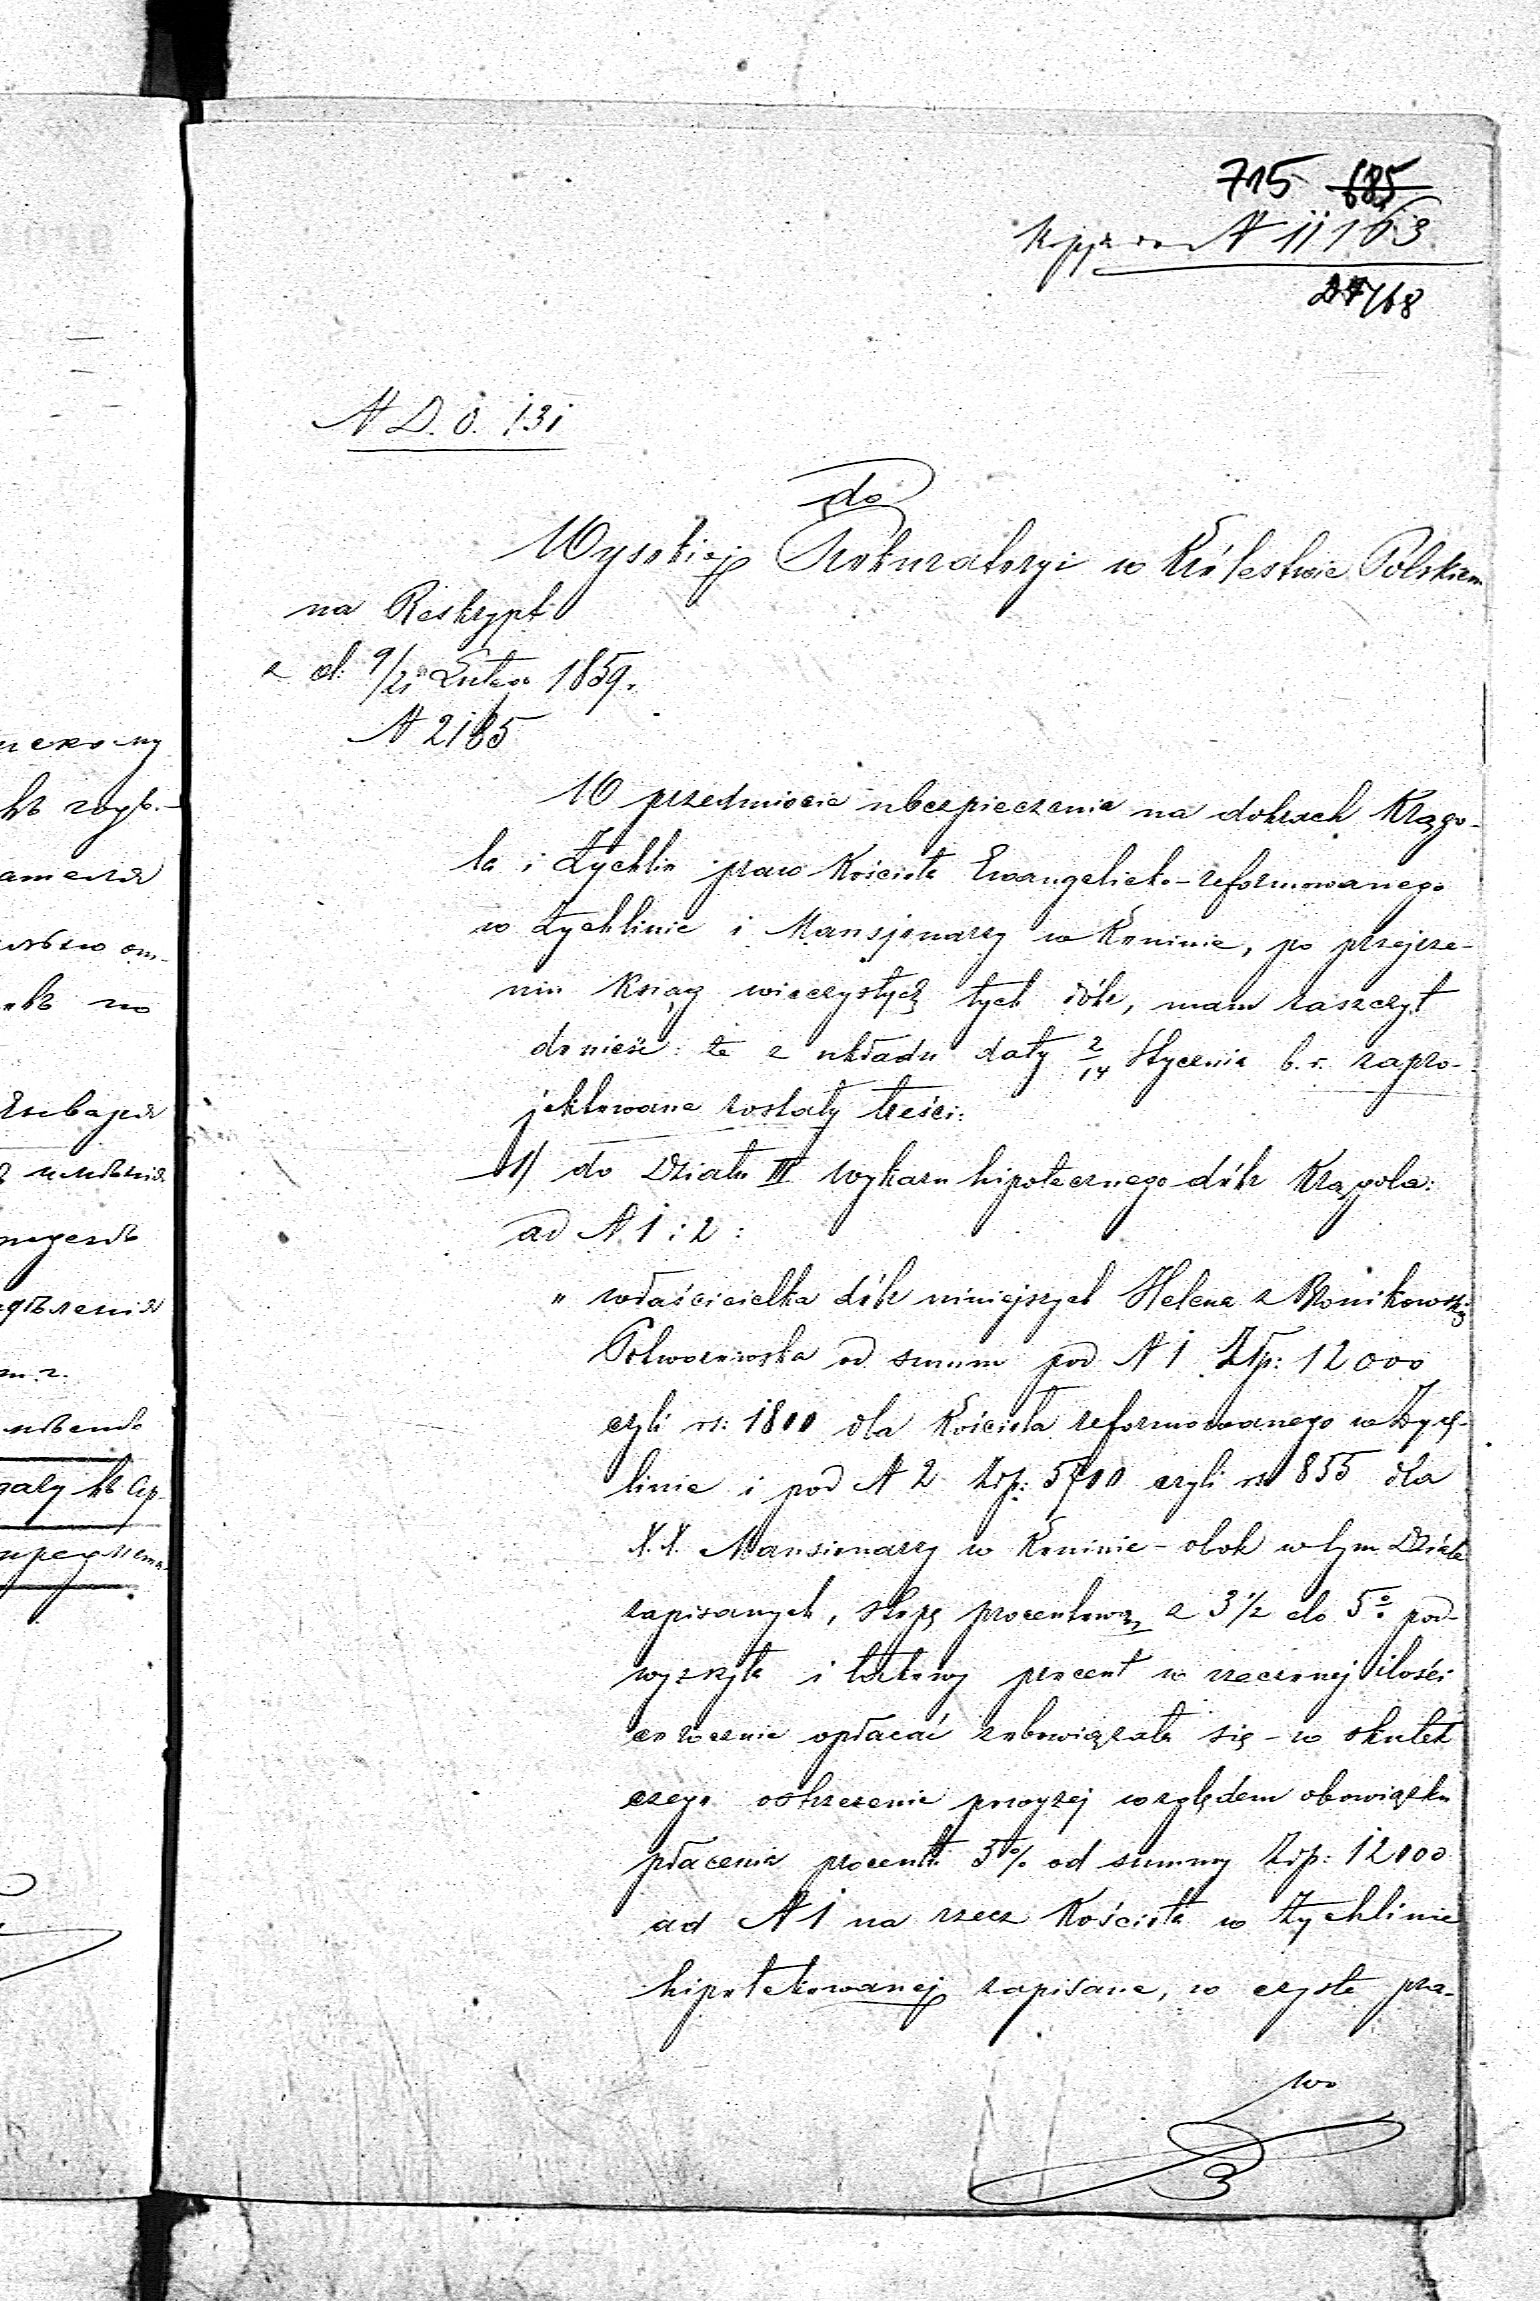 715 685
Kopja N 11163
N D. O. 131
do
Wysokiej Prokuratoryi w Królestwie Polskiem
na Reskrypt
z d. 9/21 Lutego 1859.
N 2185
W przedmiocie ubezpieczenia na dobrach Krągo-
la i Żychlin praw Kościoła Ewangelicko-reformowanego
w Żychlinie i Mansjonarzy w Koninie, po przejrze-
niu Ksiąg wieczystych tych dóbr, mam zaszczyt
donieść: że z układu daty 2/14 Stycznia b. r. zapro-
jektowane zostały treści:
1) do Działu III wykazu hipotecznego dóbr Krągola:
ad N 1 i 2:
„ właścicielka dóbr niniejszych Helena z Bronikowskich
Potworowska od summ pod N 1 Złp: 12000
czyli rs: 1800 dla Kościoła reformowanego w Żych-
linie i pod N 2 Złp: 5700 czyli rs 855 dla
X.X. Mansionarzy w Koninie - obok w tym Dziale
zapisanych, stopę procentową z 3 1/2 do 5% pod-
wyższyła i takowy procent w rzeczonej ilości
corocznie opłacać zobowiązała się - w skutek
czego ostrzeżenie powyżej względem obowiązku
płacenia procentu 5% od summy Złp: 12000
ad N 1 na rzecz Kościoła w Żychlinie
hipotekowanej zapisane, w czyste pra-
wo